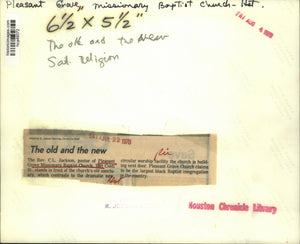 Pleasant Grove, Missionary Baptist Church - Hst.
FRI AUG 4 1978
6 1/2 X 5 1/2"
The old and the New
Sat Religion
JUL 22 1978
The old and the new
The Rev. C.L. Jackson, pastor of Pleasant
Grove Missionary Baptist Church,
St., stands in front of the church's old sanctu-
ary, which contrasts to the dramatic new,
circular worship facility the church is build-
ing next door. Pleasant Grove Church claims
to be the largest black Baptist congregation
in the country.
Houston Chronicle Library